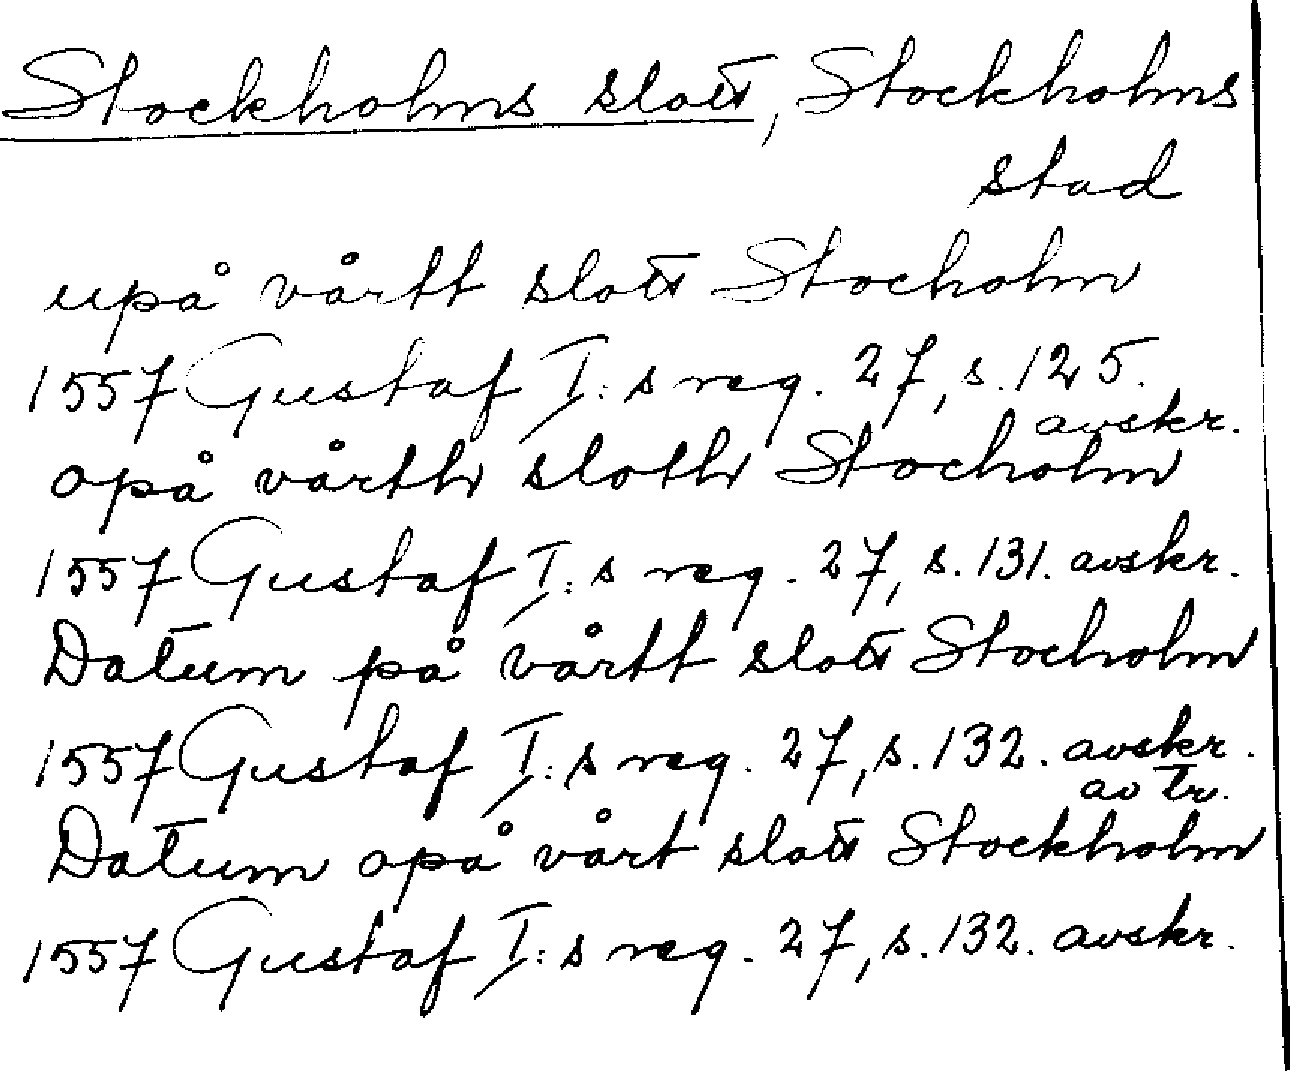 Stockholms slott, Stockholms
stad
upå vårtt slott Stocholm
1557 Gustaf I:s reg. 27, s. 125.
avskr.
opå vårth sloth Stocholm
1557 Gustaf I:s reg. 27, s. 131. avskr.
Datum på vårtt slott Stocholm
1557 Gustaf I:s reg. 27, s. 132. avskr.
av tr.
Datum opå vårt slott Stockholm
1557 Gustaf I:s reg. 27, s. 132. avskr.